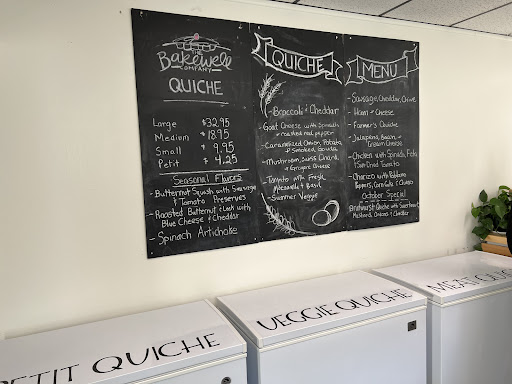 THE
Bakewell
COMPANY
QUICHE
Large $32.95
Medium $18.95
Small $9.95
Petit $4.25
Seasonal Flavors
- Butternut Squash with Sausage
& Tomato Preserves
- Roasted Butternut & Leek with
Blue Cheese & Cheddar
- Spinach Artichoke
QUICHE
- Broccoli & Cheddar
- Goat Cheese with
& roasted red pepper
- Caramelized Onion, Potato
& Smoked Gouda
- Mushroom, Swiss Chard,
& Gruyere Cheese
- Tomato with Fresh
Mozzarella & Basil
- Summer Veggie
MENU
- Sausage, Cheddar, Chive
- Ham & Cheese
- Farmer's Quiche
- Jalapeno, Bacon &
Cream Cheese
- Chicken with Spinach, Feta
& Sun Dried Tomato
- Chorizo with Poblano
Peppers, Corn, & Cheese
October Special
Bratwurst Quiche with Sauerkraut,
Mustard, Onions & Cheddar
PETIT QUICHE
VEGGIE QUICHE
MEAT QUICHE